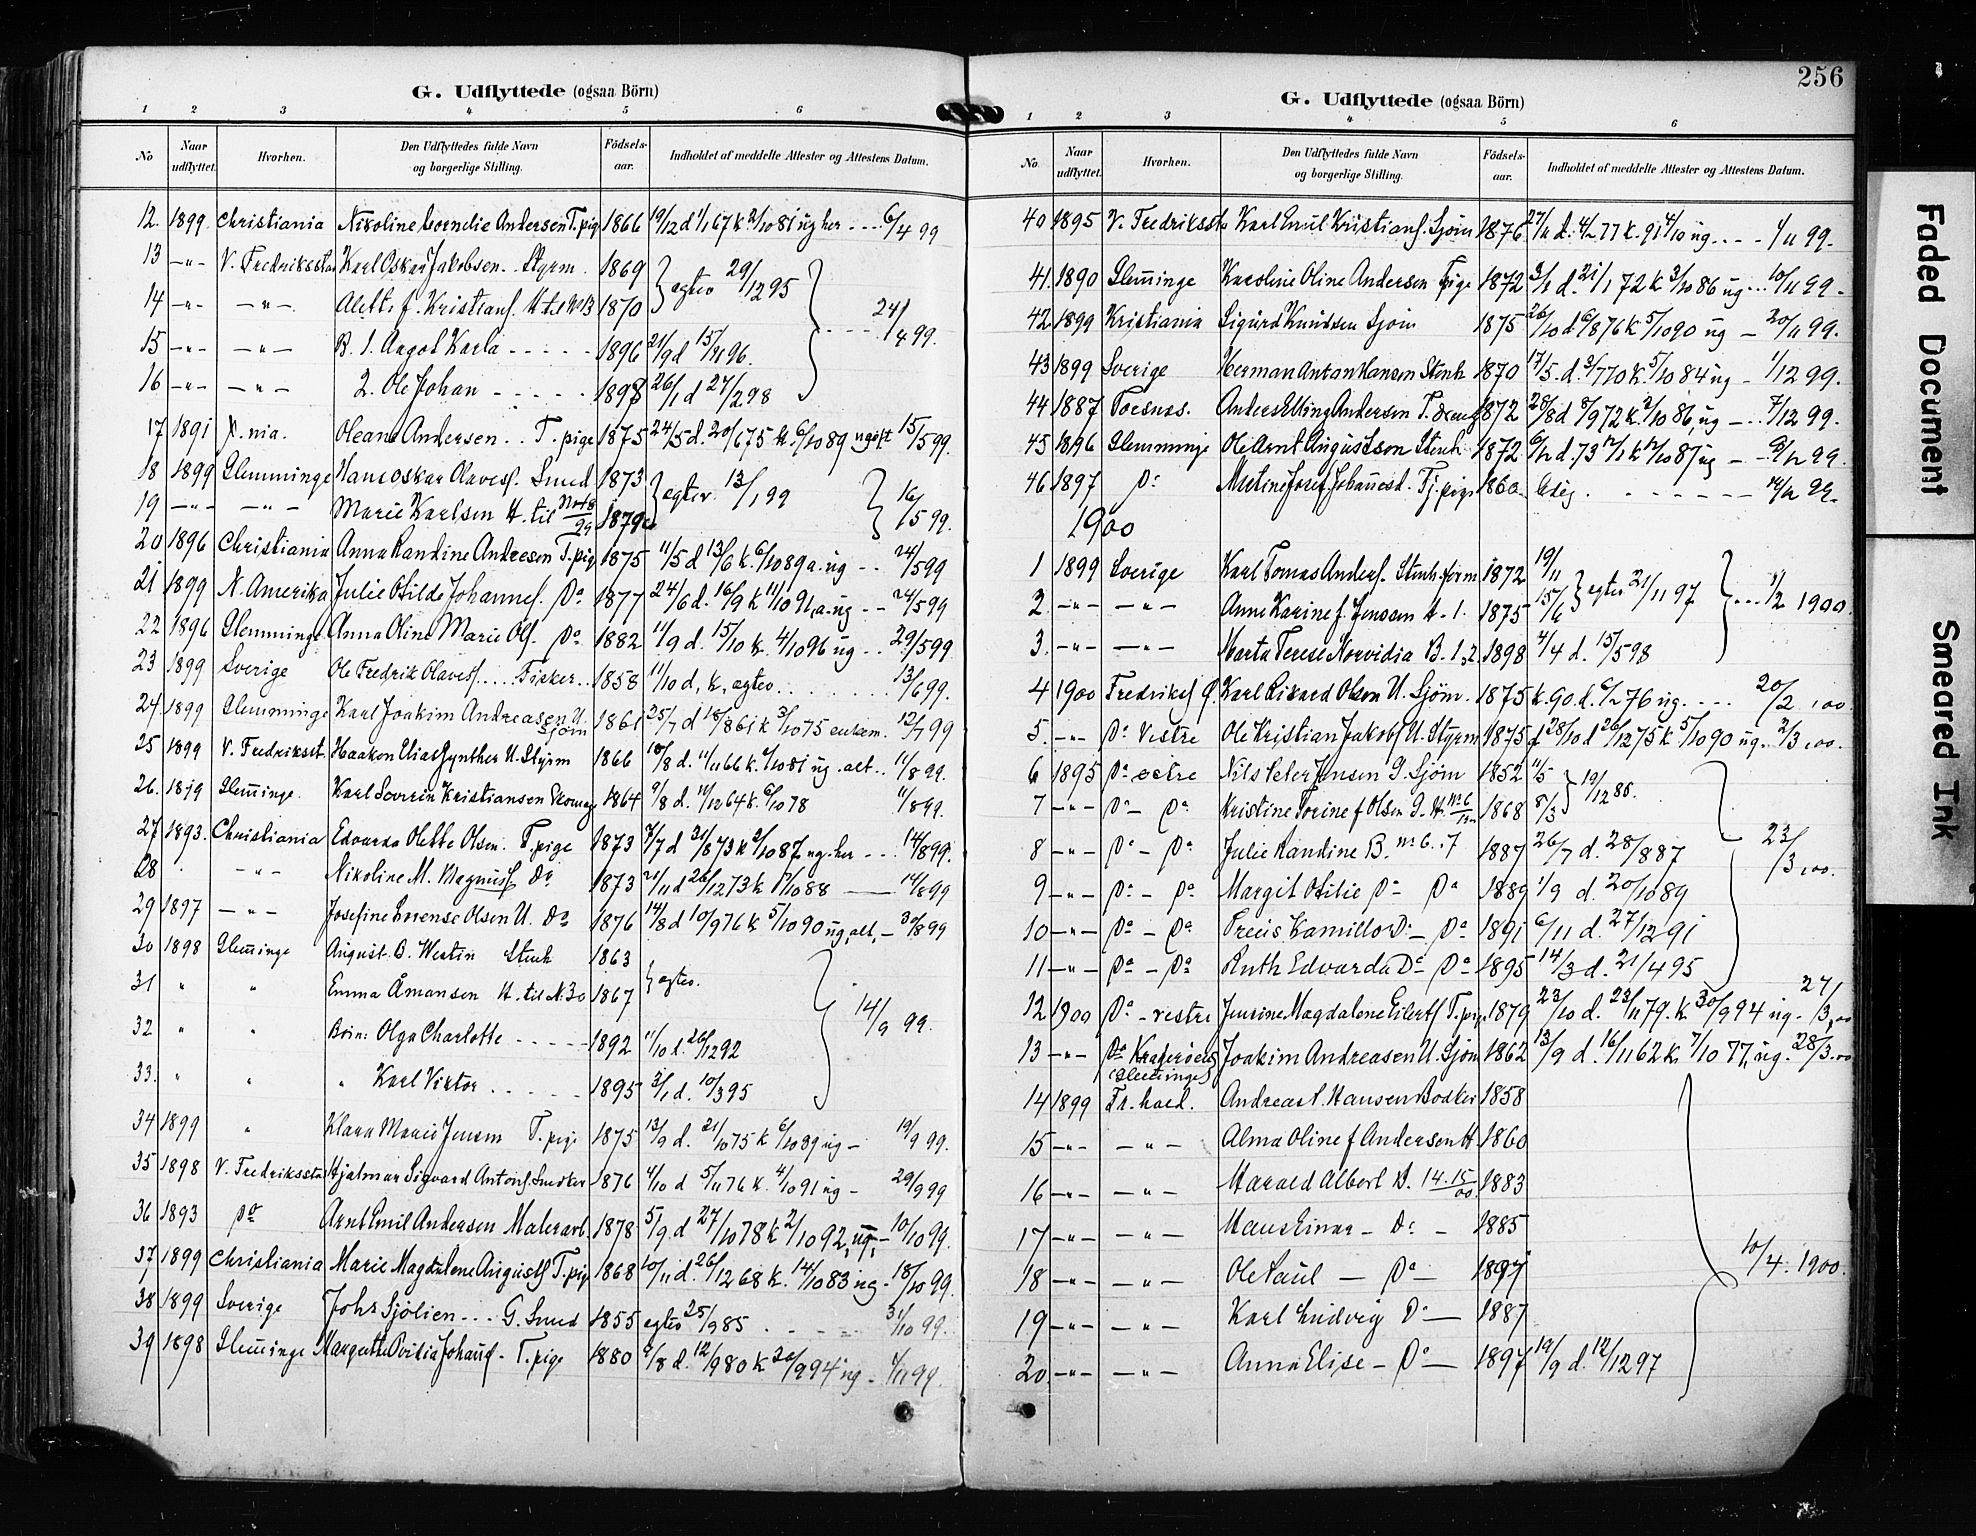 G. Udflyttede (ogsaa Börn)
1 2 3 4 5 6
No Naar udflyttet. Hvorhen. Den Udflyttedes fulde Navn og borgerlige Stilling. Födsels-aar. Indholdet af meddelte Attester og Attestens Datum.
12. 1899. Christiania Nikoline Andersen T.pig 1866 19/12 d 1/1 67 k 2/10 81 ug her - - - 6/4 99
13 -"- V. Fredrikstad Karl Oskar Jakobsen . . Styrm. 1869 } egtev 29/12 95
14 -"- -"- f. Kristians. H til No 13 1870
15 -"- -"- B. 1. Aagot Karla - - - - - 1896 21/9 d 15/11 96. - - - 24/4 99.
16 -"- -"- 2. Ole Johan - - - - - 1898 26/1 d 27/2 98
17 1891 X.nia. Oleana Andersen . . T. pige 1875 24/5 d. 20/6 75 k. 6/10 89 ugift 15/5 99.
18 1899 Glemminge Hans Oskar Olaves. Smed 1873 } egtev. 13/1 99
19 -"- -"- Marie Karlsen H. til No 18/99 1879 16/5 99.
20 1896 Christiania Anna Randine Andresen T.pig 1875 11/5 d 13/6 k. 6/10 89 a. ug - - 24/5 99
21 1899 N. Amerika Julie Otilde Johannes. Do 1877 24/6 d. 16/9 k 11/10 91, a. ug - - 24/5 99
22 1896 Glemminge Anna Oline Marie Ols. Do 1882 11/9 d. 15/10 k. 4/10 96 ug . . 29/5 99
23 1899 Sverige Ole Fredrik Olaves . . . . Fisker . . 1858 11/10 d, k, egtev . . . . 13/6 99.
24 1899 Glemminge Karl Joakim Andreasen U. Sjöm 1861 25/7 d 18/8 61 k 3/10 75 enkem. 12/7 99
25 1899 V. Fredrikst. Haakon Elias Gynther U. Styrm 1866 18/8 d. 11/11 66 k. 2/10 81 ug. alt . . 11/8 99.
26. 1899 Glem̅inge. Karl Severin Kristiansen 1864 9/8 d. 11/12 64 k. 6/10 78 11/8 99.
27 1893. Christiania Edvarda Olette Olsen. T. pige 1873 7/7 d 21/8 73 k 2/10 87 ug. her - - - 14/8 99.
28 -"- Nikoline M. Magnus Do 1873 21/11 d 26/12 73 k 7/10 88 — 14/8 99
29 1897 -"- Josefine Lorense Olsen U. Do 1876 14/8 d 10/9 76 k 5/10 90 ug, alt, - 30/8 99
30 1898 Glem̅inge August. B. Westin Stenh 1863
31 " " Emma Åmansen H. til N. 30 1867 } egtev.
32 " " Börn: Olga Charlotte - - - - - 1892 11/10 d. 26/12 92 14/9 99.
33. " " " Karl Viktor . . . . . . 1895 3/1 d. 10/3 95
34 1899 " Klara Marie Jensen T. pige 1875 13/9 d. 21/10 75 k 6/10 89 ug - 19/9 99.
35 1898 V. Fredriksstad Hjalmar Sigvard Antons. 1876 4/10 d 5/11 76 k. 4/10 91 ug - 29/9 99
36 1893 Do Arnt Emil Andersen Malerarb. 1878 5/9 d 27/10 78 k 2/10 92, ug, - 10/10 99.
37 1899 Christiania Marie Magdalene August T. pig 1868 10/11 d. 26/12 68 k. 14/10 83 ug - 18/10 99.
38 1899 Sverige Johs Sjölien . . . G. Smed 1855 egtev 25/9 85 . . . . 31/10 99.
39 1898 Glem̅inge Johans - T. pige 1880 9/8 d. 12/9 80 k 30/9 94 ug - 1/11 99.
256
G. Udflyttede (ogsaa Börn)
1 2 3 4 5 6
No Naar udflyttet. Hvorhen. Den Udflyttedes fulde Navn og borgerlige Stilling. Födsels-aar. Indholdet af meddelte Attester og Attestens Datum.
40 1895 V. Fredrikssta Karl Emil Kristians. Sjöm 1876 27/11 d. 4/2 77 k. 91 4/10 ug. . . . 1/11 99.
41. 1890 Glem̅inge Karoline Oline Andersen Tpige 1872 3/1 d. 21/1 72 k 3/10 86 ug . . . 10/11 99 -
42 1899 Kristiania Sigurd Knudsen Sjöm 1875 26/10 d 6/8 76 k 5/10 90 ug - 20/11 99.
43 1899 Sverige Herman Anton Hansen Stenh 1870 17/5 d. 3/7 70 k. 5/10 84 ug - 1/12 99.
44 1887 Torsnæs. Anders Elling Andersen T. dreng 1872 28/8 d 8/9 72 k 3/10 86, ug - . . 7/12 99.
45 1896 Glemminge Ole Arnt Augustson Stenh 1872 6/12 d. 73 12/1 k 12/10 87 ug - 9/12 99.
46 1897 Do Johanesd. Tj. pige 1860. . . . . . . . 14/12 99.
1900
1 1899 Sverige Karl Tomas Anders. Stenh. form 1872 19/11 } egtev 21/11 97 . . . 1/2 1900.
2 -"- -"- Anne Karine f. Jenssen H - 1. 1875 15/6
3. -"- -"- Marta Terese Norvidia B. 1, 2. 1898 4/4 d. 15/5 98
4 1900 Fredriks Ø. Karl Rikard Olsen U. Sjöm. 1875 k. 90 d. 6/2 76 ug. . . . 20/2 00.
5. -"- Do Vestre Ole Kristian Jakobs U. Styrm 1875 f 28/10 d 26/12 75 k 5/10 90 ug. . 2/3 00.
6 1895 Do østre Nils Peter Jensen G. Sjöm 1852 11/5 } 19/12 86.
7 -"- Do - Do Kristine Torine f Olsen G. H. No 6 1868 8/3
8 -"- Do - Do Julie Randine B. no 6 . 7 1887 26/7 d. 28/8 87 23/3 00.
9 -"- Do - Do Margit Otilie Do - Do 1889 1/9 d. 20/10 89
10 -"- Do - Do Kamillo Do - Do 1891 6/11 d. 27/12 91
11 -"- Do - Do Ruth Edvarda Do - Do 1895 14/3 d. 21/4 95
12 1900 Do - vestre Jensine Magdalene Eilerts T. pige 1879 23/10 d. 23/11 79. k 30/9 94 ug - 27/3, 00
13 -"- Do Kragerøen (Glemminge) Joakim Andreasen U. Sjöm 1862 13/9 d. 16/11 62 k. 7/10 77, ug. 28/3. 00
14 1899 Fr. hald. Andreas L. Hansen Bødker 1858
15 -"- -"- Alma Oline f Andersen H 1860
16 -"- -"- Harald Albert B. 14. 15/00 1883
17 -"- -"- Hans Einar - Do - 1885
18 -"- -"- Ole Paul - Do - 1897 10/4. 1900.
19 -"- -"- Karl Ludvig Do — 1887
20. -"- -"- Anna Elise - Do — 1897 19/9 d. 12/12 97
Faded Document
Smeared Ink